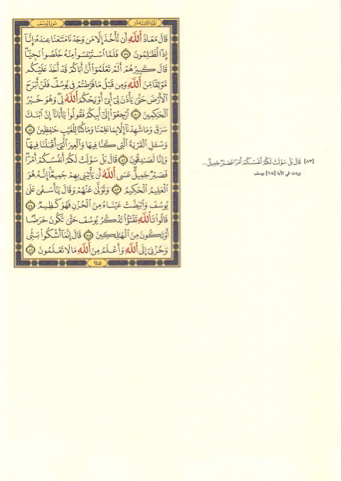 سورة يوسف
قَالَ مَعَاذَ اللَّهِ أَن نَّأْخُذَ إِلَّا مَن وَجَدْنَا مَتَاعَنَا عِندَهُ إِنَّا
إِذًا لَّظَالِمُونَ ٧٩ فَلَمَّا اسْتَيْأَسُوا مِنْهُ خَلَصُوا نَجِيًّا
قَالَ كَبِيرُهُمْ أَلَمْ تَعْلَمُوا أَنَّ أَبَاكُمْ قَدْ أَخَذَ عَلَيْكُم
مَّوْثِقًا مِّنَ اللَّهِ وَمِن قَبْلُ مَا فَرَّطتُمْ فِي يُوسُفَ فَلَنْ أَبْرَحَ
الْأَرْضَ حَتَّىٰ يَأْذَنَ لِي أَبِي أَوْ يَحْكُمَ اللَّهُ لِي وَهُوَ خَيْرُ
الْحَاكِمِينَ ٨٠ ارْجِعُوا إِلَىٰ أَبِيكُمْ فَقُولُوا يَا أَبَانَا إِنَّ ابْنَكَ
سَرَقَ وَمَا شَهِدْنَا إِلَّا بِمَا عَلِمْنَا وَمَا كُنَّا لِلْغَيْبِ حَافِظِينَ ٨١
وَسْأَلِ الْقَرْيَةَ الَّتِي كُنَّا فِيهَا وَالْعِيرَ الَّتِي أَقْبَلْنَا فِيهَا
وَإِنَّا لَصَادِقُونَ ٨٢ قَالَ بَلْ سَوَّلَتْ لَكُمْ أَنفُسُكُمْ أَمْرًا
فَصَبْرٌ جَمِيلٌ عَسَى اللَّهُ أَن يَأْتِيَنِي بِهِمْ جَمِيعًا إِنَّهُ هُوَ
الْعَلِيمُ الْحَكِيمُ ٨٣ وَتَوَلَّىٰ عَنْهُمْ وَقَالَ يَا أَسَفَىٰ عَلَىٰ
يُوسُفَ وَابْيَضَّتْ عَيْنَاهُ مِنَ الْحُزْنِ فَهُوَ كَظِيمٌ ٨٤
قَالُوا تَاللَّهِ تَفْتَأُ تَذْكُرُ يُوسُفَ حَتَّىٰ تَكُونَ حَرَضًا
أَوْ تَكُونَ مِنَ الْهَالِكِينَ ٨٥ قَالَ إِنَّمَا أَشْكُو بَثِّي
وَحُزْنِي إِلَى اللَّهِ وَأَعْلَمُ مِنَ اللَّهِ مَا لَا تَعْلَمُونَ ٨٦
٢٤٥
[٨٣] قَالَ بَلْ سَوَّلَتْ لَكُمْ أَنفُسُكُمْ أَمْرًا فَصَبْرٌ جَمِيلٌ...
وردت في الآية [١٨] يوسف